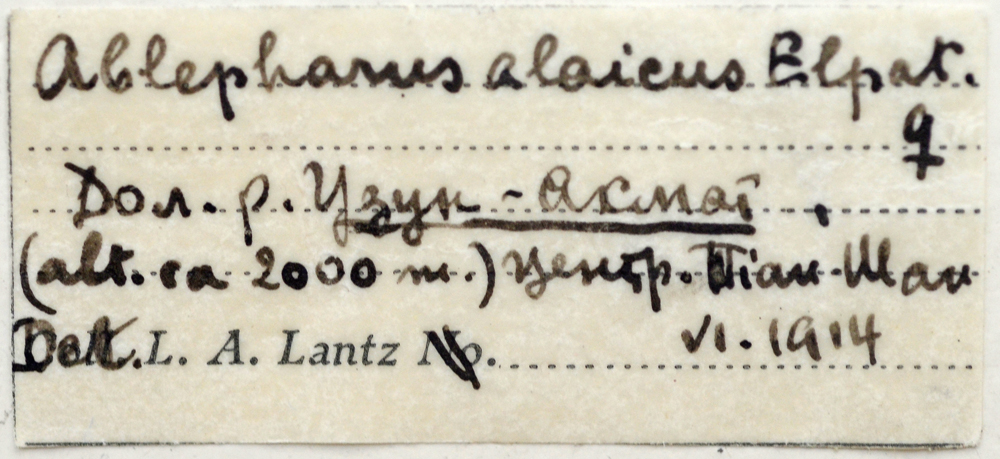 Ablepharus alaicus Elpat.
♀
Дол. р. Узун-Акмат,
(alt. ca 2000 m.) Центр. Тіан-Шан
Det. L. A. Lantz No. VI. 1914